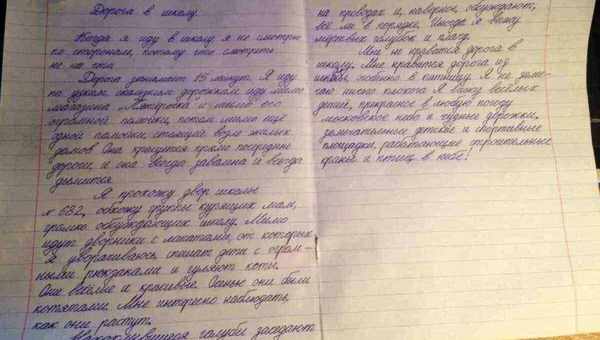 Дорога в школу.
Когда я иду в школу я не смотрю
по сторонам, потому что смотреть
не на что.
Дорога занимает 15 минут. Я иду
по узким скользким дорожкам иду мимо
магазина Пятёрочка и мимо его
огромной помойки, потом мимо ещё
одной помойки, стоящей возле жилых
домов. Она красуется прямо посередине
дороги, и она всегда завалена и всегда
дымится.
Я прохожу двор школы
№ 682, обхожу группы курящих мам,
громко обсуждающих школу. Мимо
идут дворники с лопатами, от которых
я уворачиваюсь, спешат дети с огром-
ными рюкзаками и гуляют коты.
Они весёлые и красивые. Осенью они были
котятами. Мне интересно наблюдать,
как они растут.
голуби заседают
на проводах и, наверное, обсуждают,
всё ли в порядке. Иногда я вижу
мёртвых голубок и плачу.
Мне не нравится дорога в
школу. Мне нравится дорога из
школы, особенно в пятницу. Я не заме-
чаю ничего плохого. Я вижу весёлых
детей, прекрасное в любую погоду
московское небо и чудные дорожки,
замечательные детские и спортивные
площадки, работающие строительные
краны и птиц в небе!